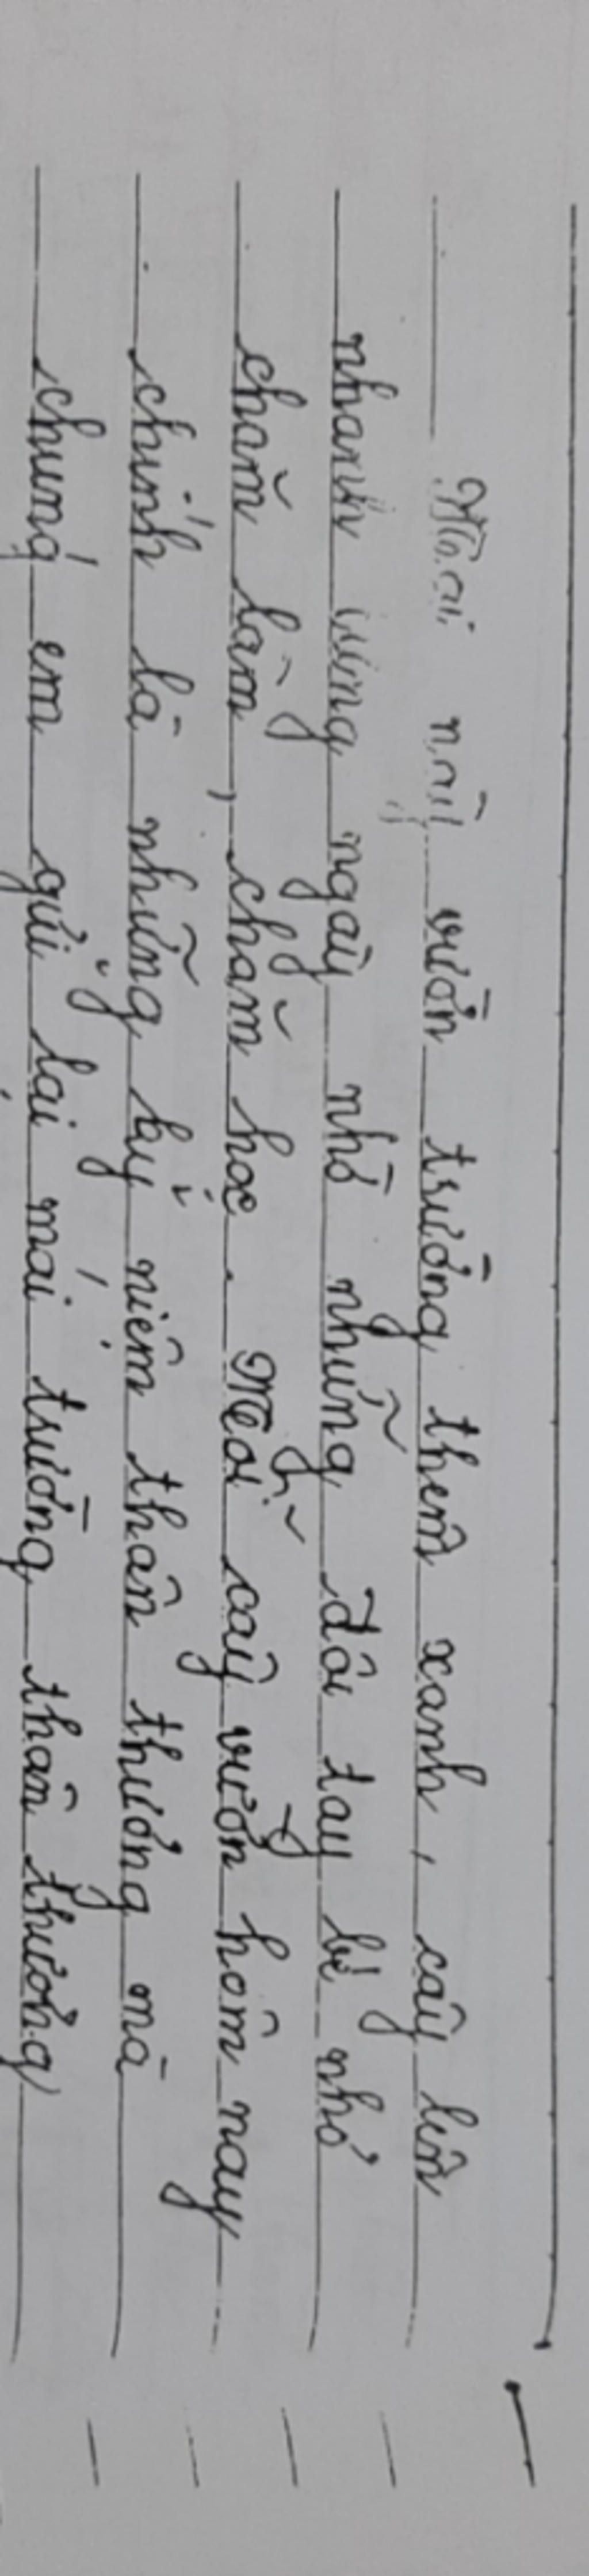 Mỗi ngày vườn trường thêm xanh, cây lớn
nhanh từng ngày nhờ những đôi tay bé nhỏ
chăm làm, chăm học. Mỗi cây vườn hôm nay
chính là những kỷ niệm thân thương mà
chúng em gửi lại mái trường thân thương